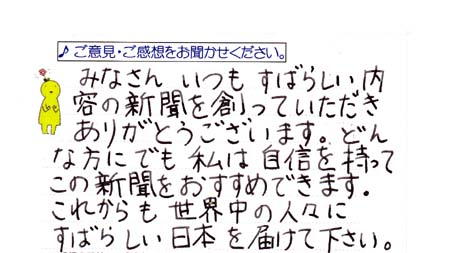 ♪ ご意見・ご感想をお聞かせください。
みなさん いつも すばらしい内
容の新聞を創っていただき
ありがとうございます。どん
な方にでも 私は 自信を持って
この新聞をおすすめできます。
これからも 世界中の人々に
すばらしい日本を届けて下さい。